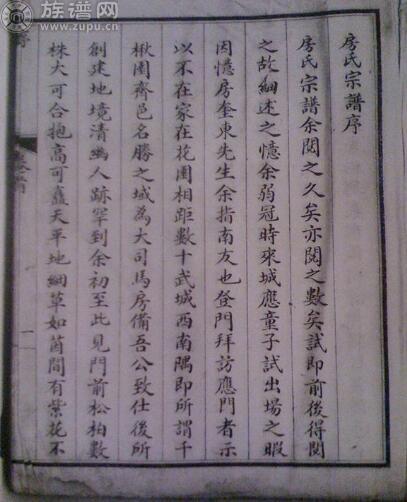 族谱网
zupu.cn
房氏宗譜序
房氏宗譜余閱之久矣亦閱之數矣試即前後得閱
之故細述之憶余弱冠時來城應童子試出場之暇
因憶房奎東先生余指南友也登門拜訪應門者示
以不在家在花園相距數十武城西南隅即所謂千
楸園齊邑名勝之域為大司馬房備吾公致仕後所
創建地境清幽人跡罕到余初至此見門前松柏數
株大可合抱高可矗天平地細草如茵間有紫花不
一